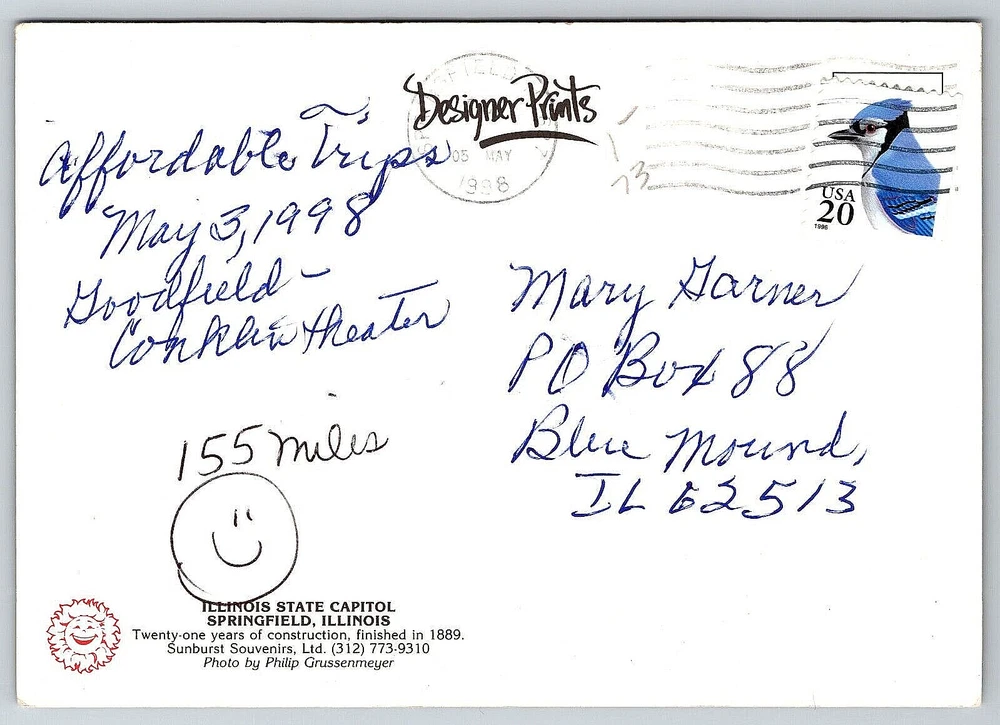 Designer Prints
Affordable Trips
May 3, 1998
Goodfield -
Conklin theater
155 miles
FIELD
03 MAY
1998
73
USA
20
1996
Mary Garner
PO Box 88
Blue Mound,
IL 62513
ILLINOIS STATE CAPITOL
SPRINGFIELD, ILLINOIS
Twenty-one years of construction, finished in 1889.
Sunburst Souvenirs, Ltd. (312) 773-9310
Photo by Philip Grussenmeyer